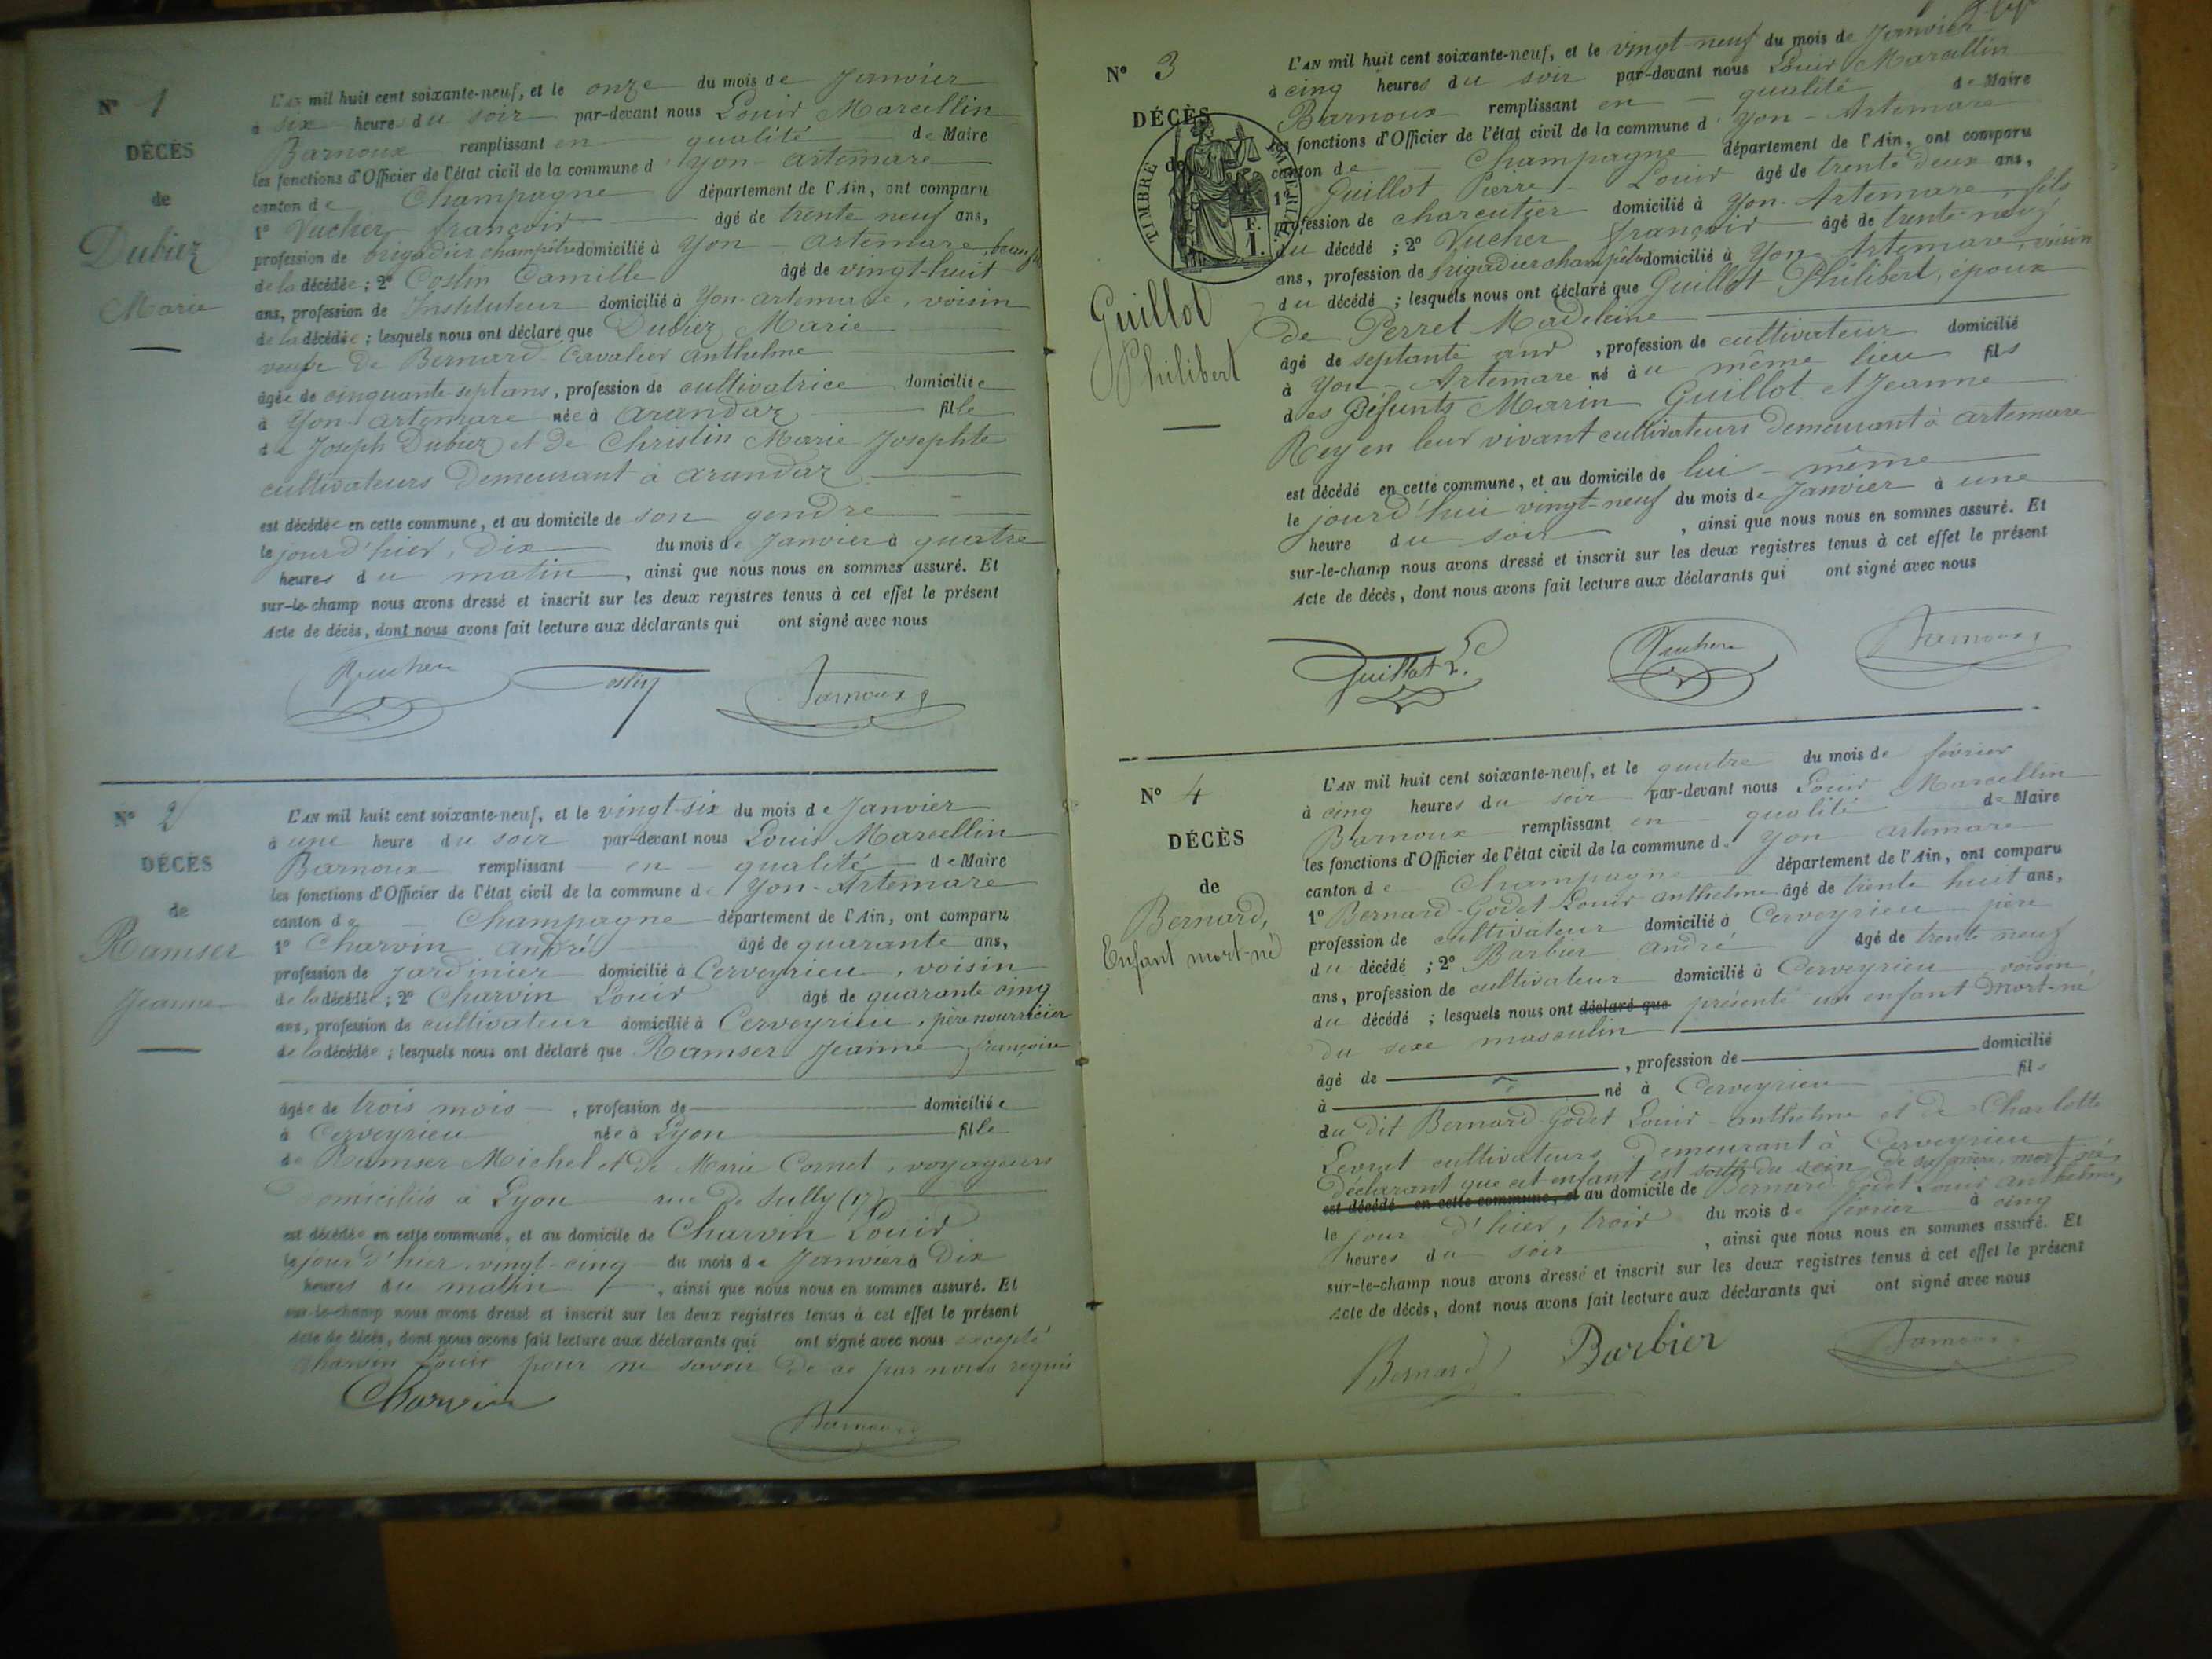 N° 1
DÉCÈS
de
Dubiez
Marie
L'AN mil huit cent soixante-neuf, et le onze du mois de Janvier
à six heures du soir par-devant nous Louis Marcellin
Barnoux remplissant en qualité de Maire
les fonctions d'Officier de l'état civil de la commune d'Yon-Artemare
canton de Champagne département de l'Ain, ont comparu
1° Vucher françois âgé de trente neuf ans,
profession de brigadier champêtre domicilié à Yon-Artemare, beau-fils
de la décédée ; 2° Coslin Camille âgé de vingt-huit
ans, profession de Instituteur domicilié à Yon-artemare, voisin
de la décédée ; lesquels nous ont déclaré que Dubiez Marie
veuve De Bernard-Cavalier Anthelme
âgée de cinquante-sept ans, profession de cultivatrice domiciliée
à Yon-Artemare née à Arandaz fille
de Joseph Dubiez et De Christin Marie Josephte
cultivateurs Demeurant à Arandaz
est décédée en cette commune, et au domicile de son gendre
le jour d'hier, Dix du mois de Janvier à quatre
heures du matin, ainsi que nous nous en sommes assuré. Et
sur-le-champ nous avons dressé et inscrit sur les deux registres tenus à cet effet le présent
Acte de décès, dont nous avons fait lecture aux déclarants qui ont signé avec nous
Vucher Coslin Barnoux
N° 2
DÉCÈS
de
Ramser
Jeanne
L'AN mil huit cent soixante-neuf, et le vingt-six du mois de Janvier
à une heure du soir par-devant nous Louis Marcellin
Barnoux remplissant en qualité de Maire
les fonctions d'Officier de l'état civil de la commune d'Yon-Artemare
canton de Champagne département de l'Ain, ont comparu
1° Charvin André âgé de quarante ans,
profession de Jardinier domicilié à Cerveyrieu, voisin
de la décédée ; 2° Charvin Louis âgé de quarante cinq
ans, profession de cultivateur domicilié à Cerveyrieu, père nourricier
de la décédée ; lesquels nous ont déclaré que Ramser Jeanne françoise
âgée de trois mois, profession de domiciliée
à Cerveyrieu née à Lyon fille
de Ramser Michel et De Marie Cornet, voyageurs
Domiciliés à Lyon rue De Sully (17)
est décédée en cette commune, et au domicile de Charvin Louis
le jour d'hier, vingt-cinq du mois de Janvier à Dix
heures du matin, ainsi que nous nous en sommes assuré. Et
sur-le-champ nous avons dressé et inscrit sur les deux registres tenus à cet effet le présent
Acte de décès, dont nous avons fait lecture aux déclarants qui ont signé avec nous excepté
Charvin Louis pour ne savoir De ce par nous requis
Charvin Barnoux
N° 3
DÉCÈS
de
TIMBRE IMPÉRIAL
F.
1.
Guillot
Philibert
L'AN mil huit cent soixante-neuf, et le vingt-neuf du mois de Janvier
à cinq heures du soir par-devant nous Louis Marcellin
Barnoux remplissant en qualité de Maire
les fonctions d'Officier de l'état civil de la commune d'Yon-Artemare
canton de Champagne département de l'Ain, ont comparu
1° Guillot Pierre Louis âgé de trente Deux ans,
profession de charcutier domicilié à Yon-Artemare, fils
du décédé ; 2° Vucher françois âgé de trente-neuf
ans, profession de brigadier champêtre domicilié à Yon-Artemare, voisin
du décédé ; lesquels nous ont déclaré que Guillot Philibert, époux
de Perret Madeleine
âgé de septante ans, profession de cultivateur domicilié
à Yon-Artemare né au même lieu fils
des Défunts Marin Guillot et Jeanne
Rey en leur vivant cultivateurs Demeurant à Artemare
est décédé en cette commune, et au domicile de lui-même
le jourd'hui vingt-neuf du mois de Janvier à une
heure du soir, ainsi que nous nous en sommes assuré. Et
sur-le-champ nous avons dressé et inscrit sur les deux registres tenus à cet effet le présent
Acte de décès, dont nous avons fait lecture aux déclarants qui ont signé avec nous
Guillot L. Vucher Barnoux
N° 4
DÉCÈS
de
Bernard,
Enfant mort-né
L'AN mil huit cent soixante-neuf, et le quatre du mois de février
à cinq heures du soir par-devant nous Louis Marcellin
Barnoux remplissant en qualité de Maire
les fonctions d'Officier de l'état civil de la commune d'Yon Artemare
canton de Champagne département de l'Ain, ont comparu
1° Bernard-Godet Louis Anthelme âgé de trente huit ans,
profession de cultivateur domicilié à Cerveyrieu père
du décédé ; 2° Barbier André âgé de trente neuf
ans, profession de cultivateur domicilié à Cerveyrieu, voisin,
du décédé ; lesquels nous ont déclaré que présenté un enfant Mort-né
Du sexe masculin
âgé de, profession de domicilié
à né à Cerveyrieu fils
du Dit Bernard-Godet Louis-Anthelme et De Charlotte
Levrat cultivateurs Demeurant à Cerveyrieu
Déclarant que cet enfant est sorti du sein De sa mère, mort-né,
est décédé en cette commune, et au domicile de Bernard-Godet Louis Anthelme,
le jour d'hier, trois du mois de février à cinq
heures du soir, ainsi que nous nous en sommes assuré. Et
sur-le-champ nous avons dressé et inscrit sur les deux registres tenus à cet effet le présent
Acte de décès, dont nous avons fait lecture aux déclarants qui ont signé avec nous
Bernard Barbier Barnoux